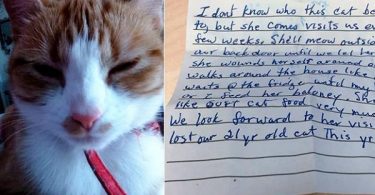 I dont know who this cat be
to, but she comes visits us ev
few weeks. She'll meow outsid
our back door until we let he
she wounds herself around o
walks around the house like
waits @ the fridge until my
or I feed her baloney. Sh
like ourr cat food very muc
We look forward to her visi
lost our 21 yr old cat This yr